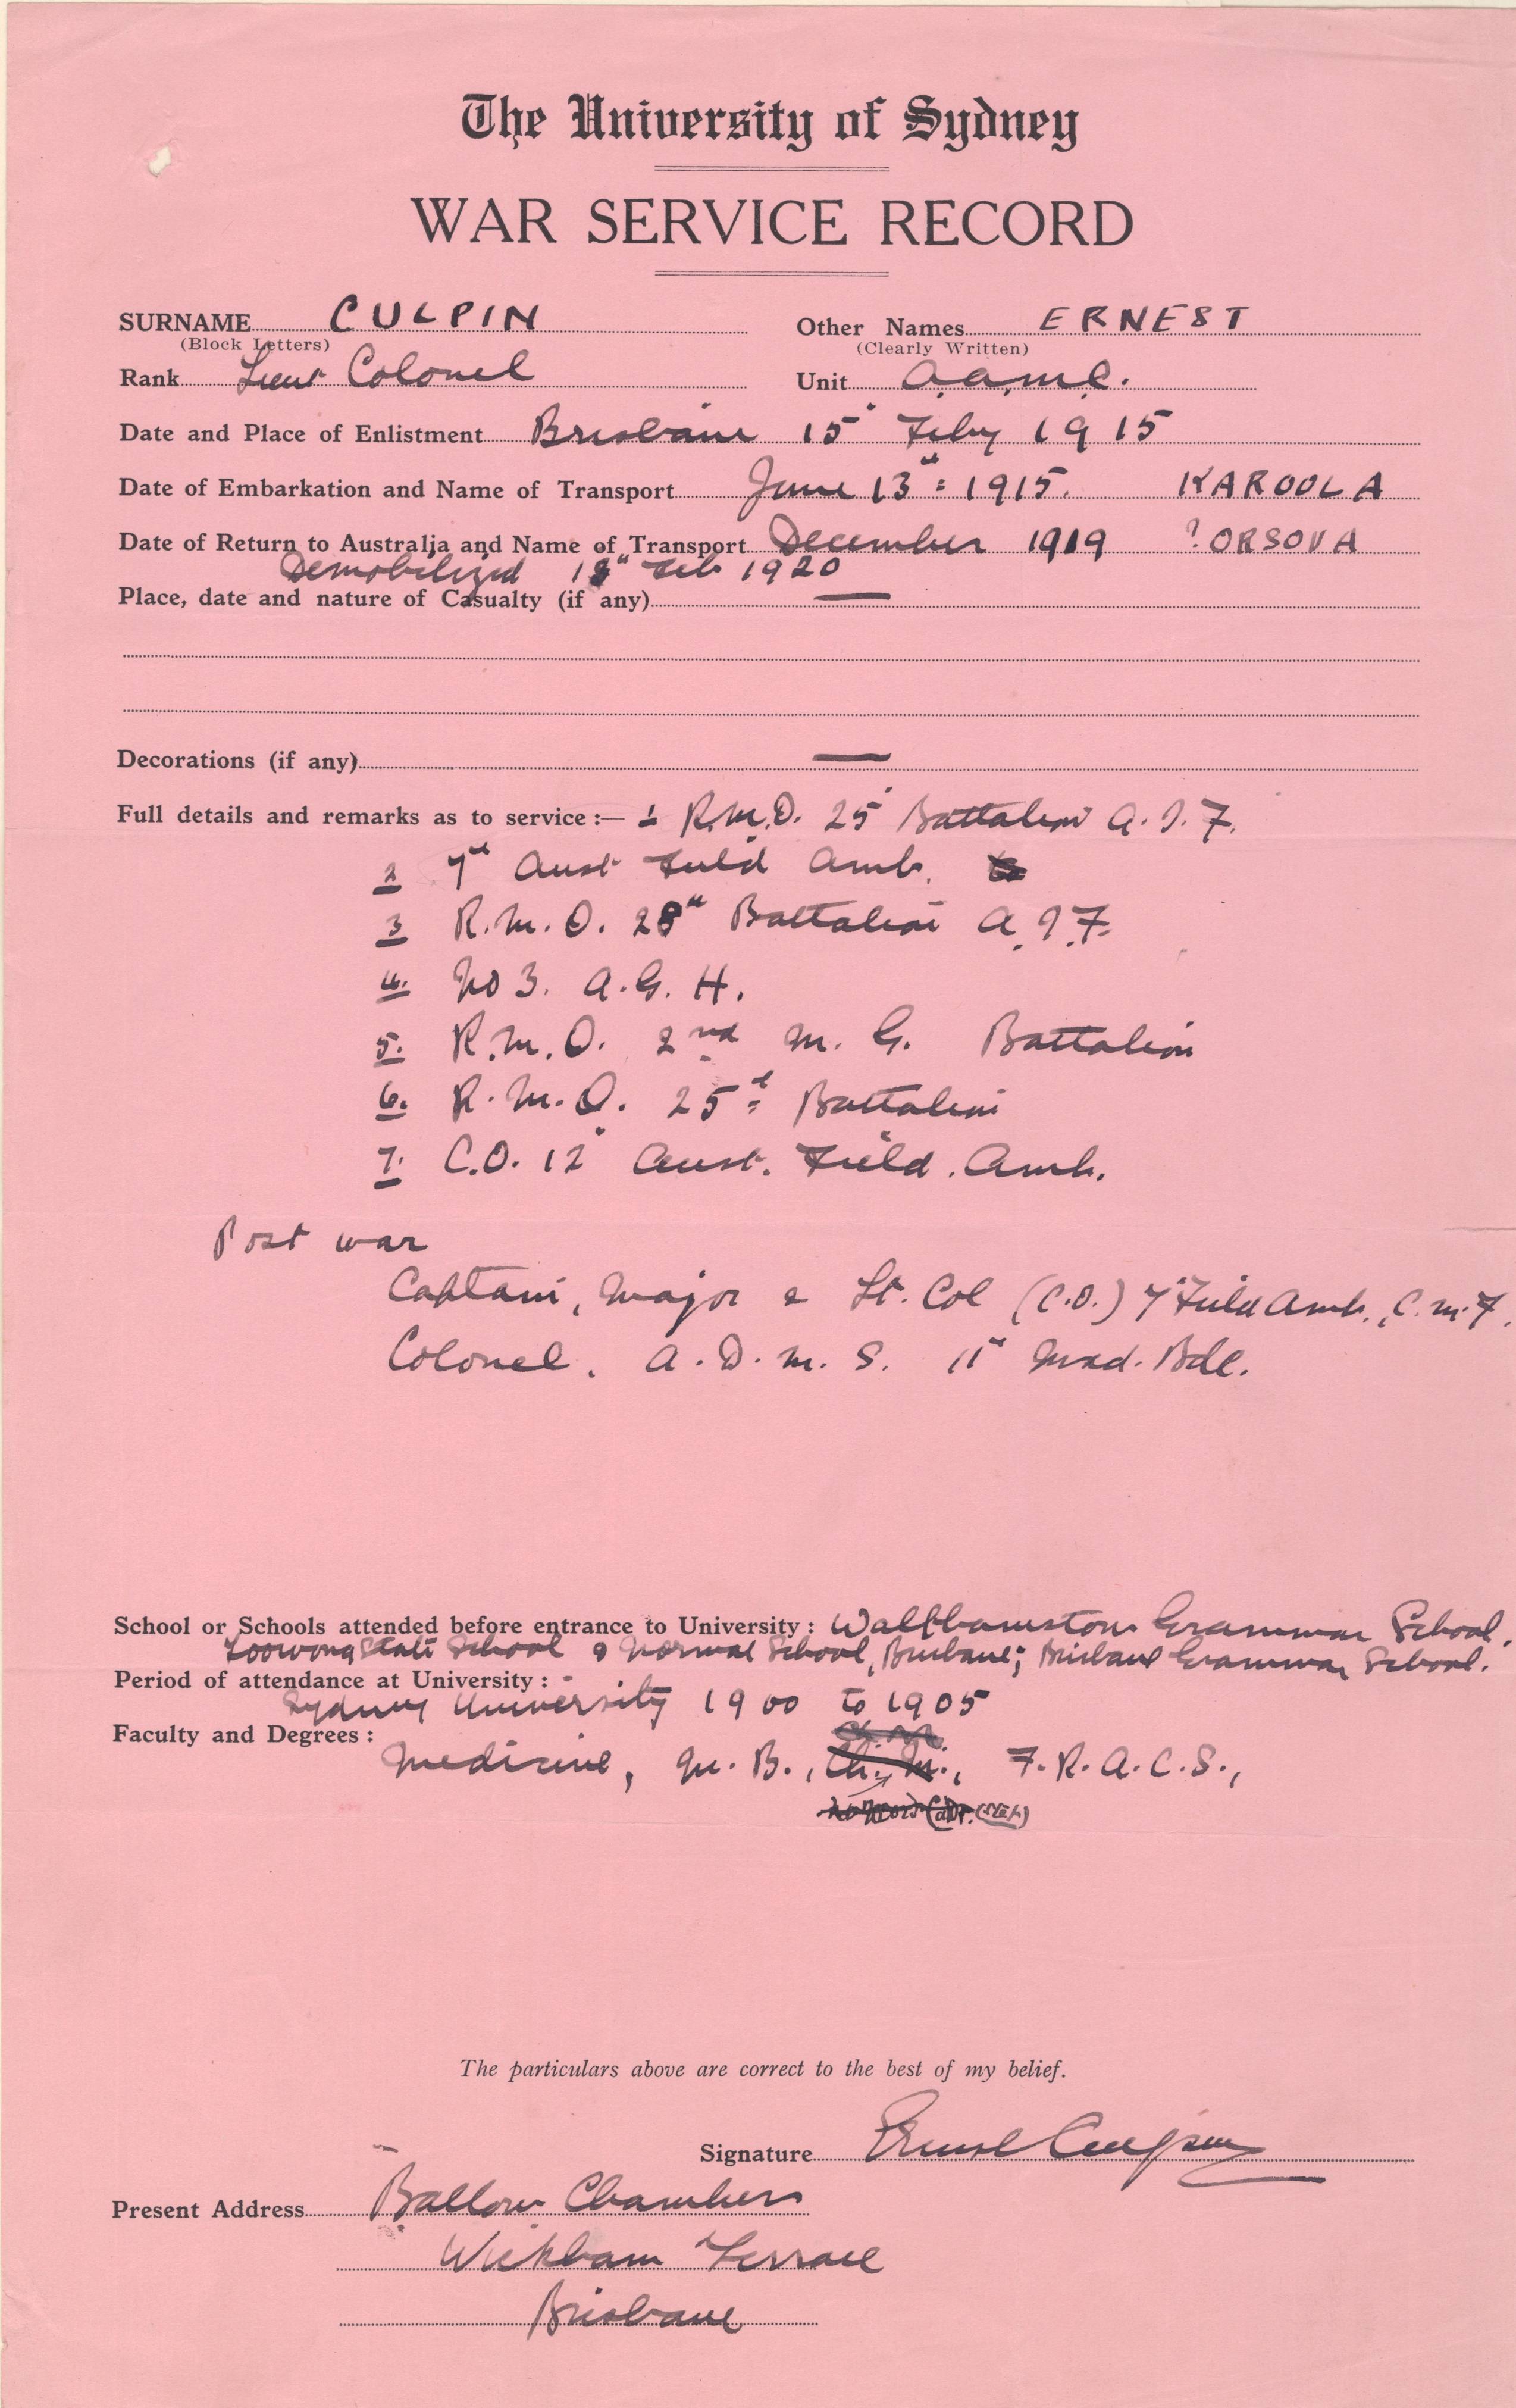 The University of Sydney
WAR SERVICE RECORD
SURNAME CULPIN Other Names ERNEST
(Block Letters) (Clearly Written)
Rank Lieut Colonel Unit A.A.M.C.
Date and Place of Enlistment Brisbane 15 Feby 1915
Date of Embarkation and Name of Transport June 13th 1915. KAROOLA
Date of Return to Australia and Name of Transport December 1919 ? ORSOVA
Demobilized 18th Feb 1920
Place, date and nature of Casualty (if any) —
Decorations (if any) —
Full details and remarks as to service:— 1 R.M.O. 25 Battalion A.I.F.
2 7th Aust Field Amb.
3 R.M.O. 28th Battalion A.I.F.
4. No 3. A.G.H.
5. R.M.O. 2nd M.G. Battalion
6. R.M.O. 25th Battalion
7. C.O. 12 Aust. Field. Amb.
Post war
Captain, Major & Lt. Col (C.O.) 7 Field Amb., C.M.F.
Colonel. A.D.M.S. 11th Mxd. Bde.
School or Schools attended before entrance to University: Walthamstow Grammar School.
Toowong State School & Normal School, Brisbane; Brisbane Grammar School.
Period of attendance at University:
Sydney University 1900 to 1905
Faculty and Degrees:
Ch. M.
Medicine, M.B., Ch. M., F.R.A.C.S.,
The particulars above are correct to the best of my belief.
Signature Ernest Culpin
Present Address Ballow Chambers
Wickham Terrace
Brisbane